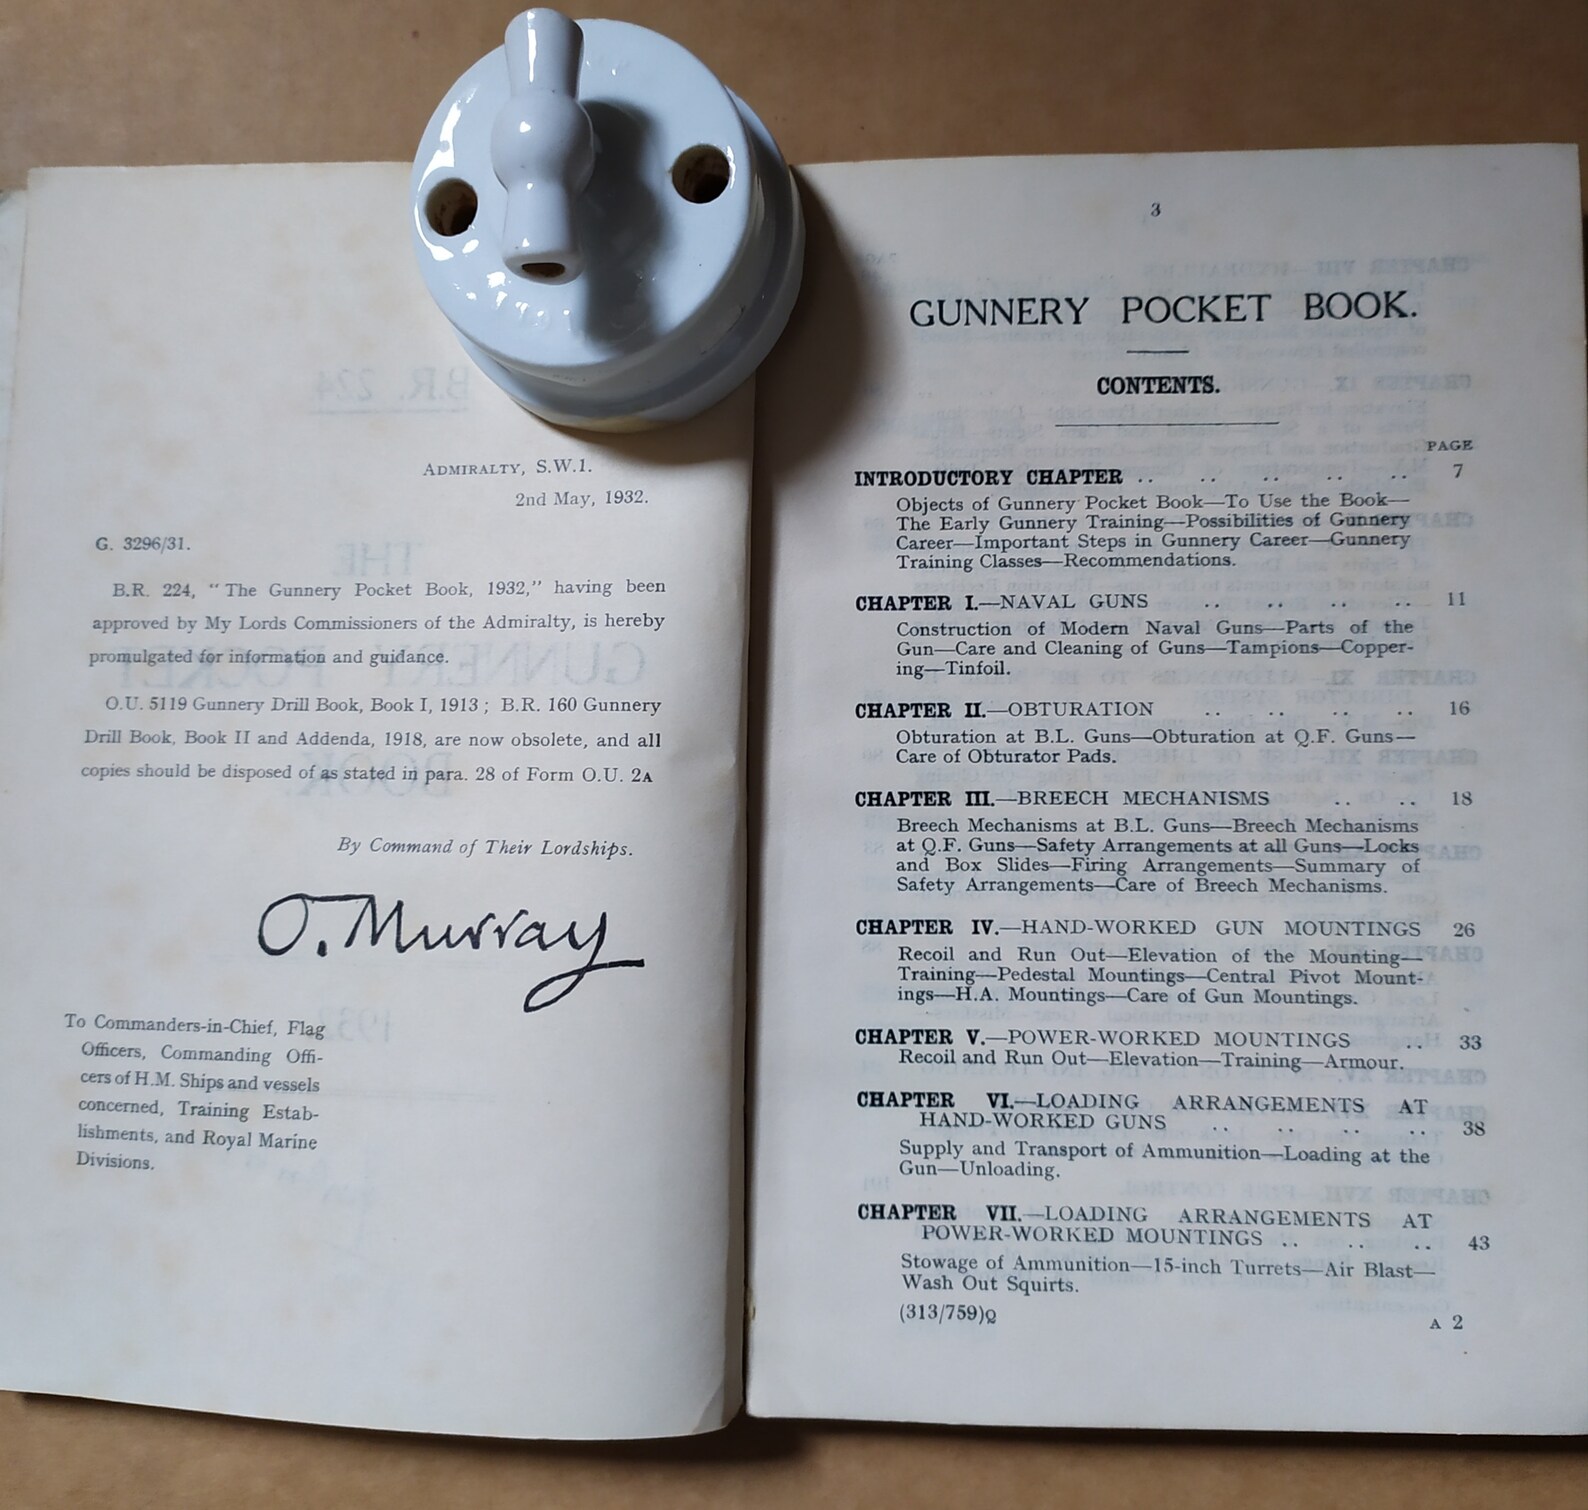 ADMIRALTY, S.W.1.
2nd May, 1932.
G. 3296/31.
B.R. 224, "The Gunnery Pocket Book, 1932," having been
approved by My Lords Commissioners of the Admiralty, is hereby
promulgated for information and guidance.
O.U. 5119 Gunnery Drill Book, Book I, 1913 ; B.R. 160 Gunnery
Drill Book, Book II and Addenda, 1918, are now obsolete, and all
copies should be disposed of as stated in para. 28 of Form O.U. 2A
By Command of Their Lordships.
O. Murray
To Commanders-in-Chief, Flag
Officers, Commanding Offi-
cers of H.M. Ships and vessels
concerned, Training Estab-
lishments, and Royal Marine
Divisions.
3
GUNNERY POCKET BOOK.
CONTENTS.
PAGE
INTRODUCTORY CHAPTER .. .. .. .. .. 7
Objects of Gunnery Pocket Book—To Use the Book—
The Early Gunnery Training—Possibilities of Gunnery
Career—Important Steps in Gunnery Career—Gunnery
Training Classes—Recommendations.
CHAPTER I.—NAVAL GUNS .. .. .. .. 11
Construction of Modern Naval Guns—Parts of the
Gun—Care and Cleaning of Guns—Tampions—Copper-
ing—Tinfoil.
CHAPTER II.—OBTURATION .. .. .. .. 16
Obturation at B.L. Guns—Obturation at Q.F. Guns—
Care of Obturator Pads.
CHAPTER III.—BREECH MECHANISMS .. .. 18
Breech Mechanisms at B.L. Guns—Breech Mechanisms
at Q.F. Guns—Safety Arrangements at all Guns—Locks
and Box Slides—Firing Arrangements—Summary of
Safety Arrangements—Care of Breech Mechanisms.
CHAPTER IV.—HAND-WORKED GUN MOUNTINGS 26
Recoil and Run Out—Elevation of the Mounting—
Training—Pedestal Mountings—Central Pivot Mount-
ings—H.A. Mountings—Care of Gun Mountings.
CHAPTER V.—POWER-WORKED MOUNTINGS .. 33
Recoil and Run Out—Elevation—Training—Armour.
CHAPTER VI.—LOADING ARRANGEMENTS AT
HAND-WORKED GUNS .. .. .. .. 38
Supply and Transport of Ammunition—Loading at the
Gun—Unloading.
CHAPTER VII.—LOADING ARRANGEMENTS AT
POWER-WORKED MOUNTINGS .. .. .. 43
Stowage of Ammunition—15-inch Turrets—Air Blast—
Wash Out Squirts.
(313/759)Q
A 2